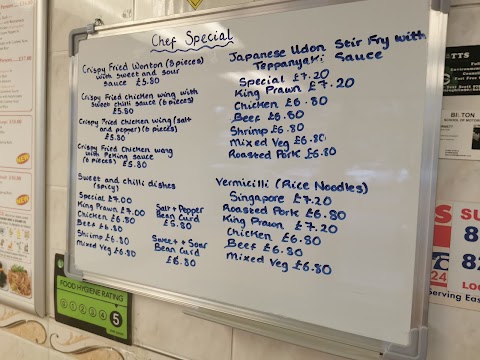 Chef Special
Crispy Fried Wonton (8 pieces)
with sweet and sour
sauce £5.80
Crispy Fried chicken wing with
sweet chilli sauce (6 pieces)
£5.80
Crispy Fried chicken wing (salt
and pepper) (6 pieces)
£5.80
Crispy Fried chicken wang
with Peking sauce
(6 pieces) £5.80
Sweet and chilli dishes
(spicy)
Special £7.00
King Prawn £7.00
Chicken £6.80
Beef £6.80
Shrimp £6.80
Mixed Veg £6.80
Salt + Pepper
Bean Curd
£5.80
Sweet + Sour
Bean Curd
£6.80
Japanese Udon Stir Fry with
Teppanyaki Sauce
Special £7.20
King Prawn £7.20
Chicken £6.80
Beef £6.80
Shrimp £6.80
Mixed Veg £6.80
Roasted Pork £6.80
Vermicilli (Rice Noodles)
Singapore £7.20
Roasted Pork £6.80
King Prawn £7.20
Chicken £6.80
Beef £6.80
Mixed Veg £6.80
FOOD HYGIENE RATING
0 1 2 3 4 5